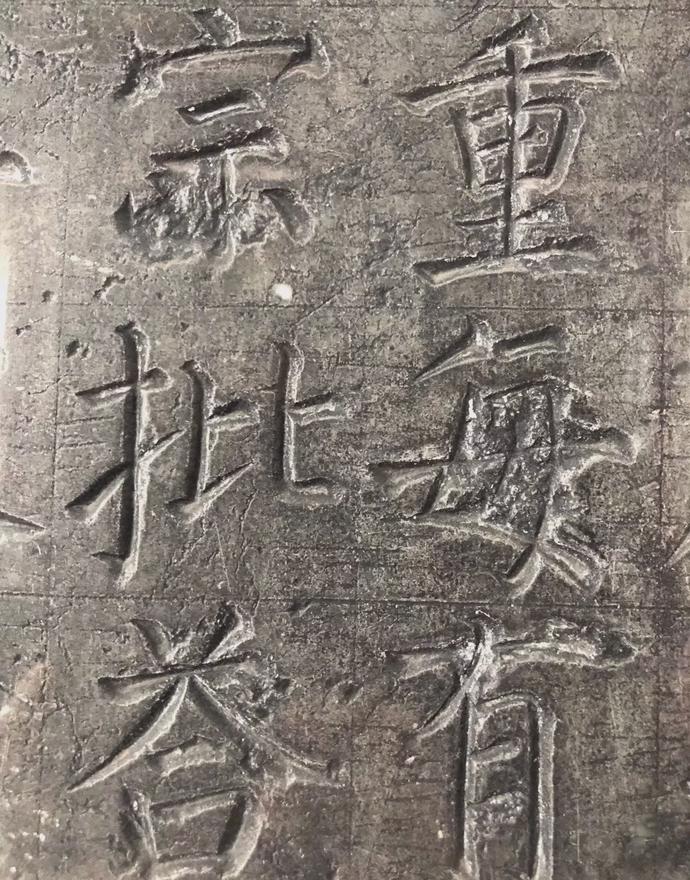 重每有
宗批荅